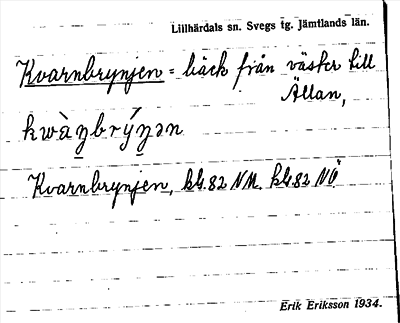 Lillhärdals sn. Svegs tg. Jämtlands län.
Kvarnbrynjen = bäck från väster till
Ällan,
kwàŋbrýŋən
Kvarnbrynjen, kb. 82 NM. kb 82 NÖ
Erik Eriksson 1934.